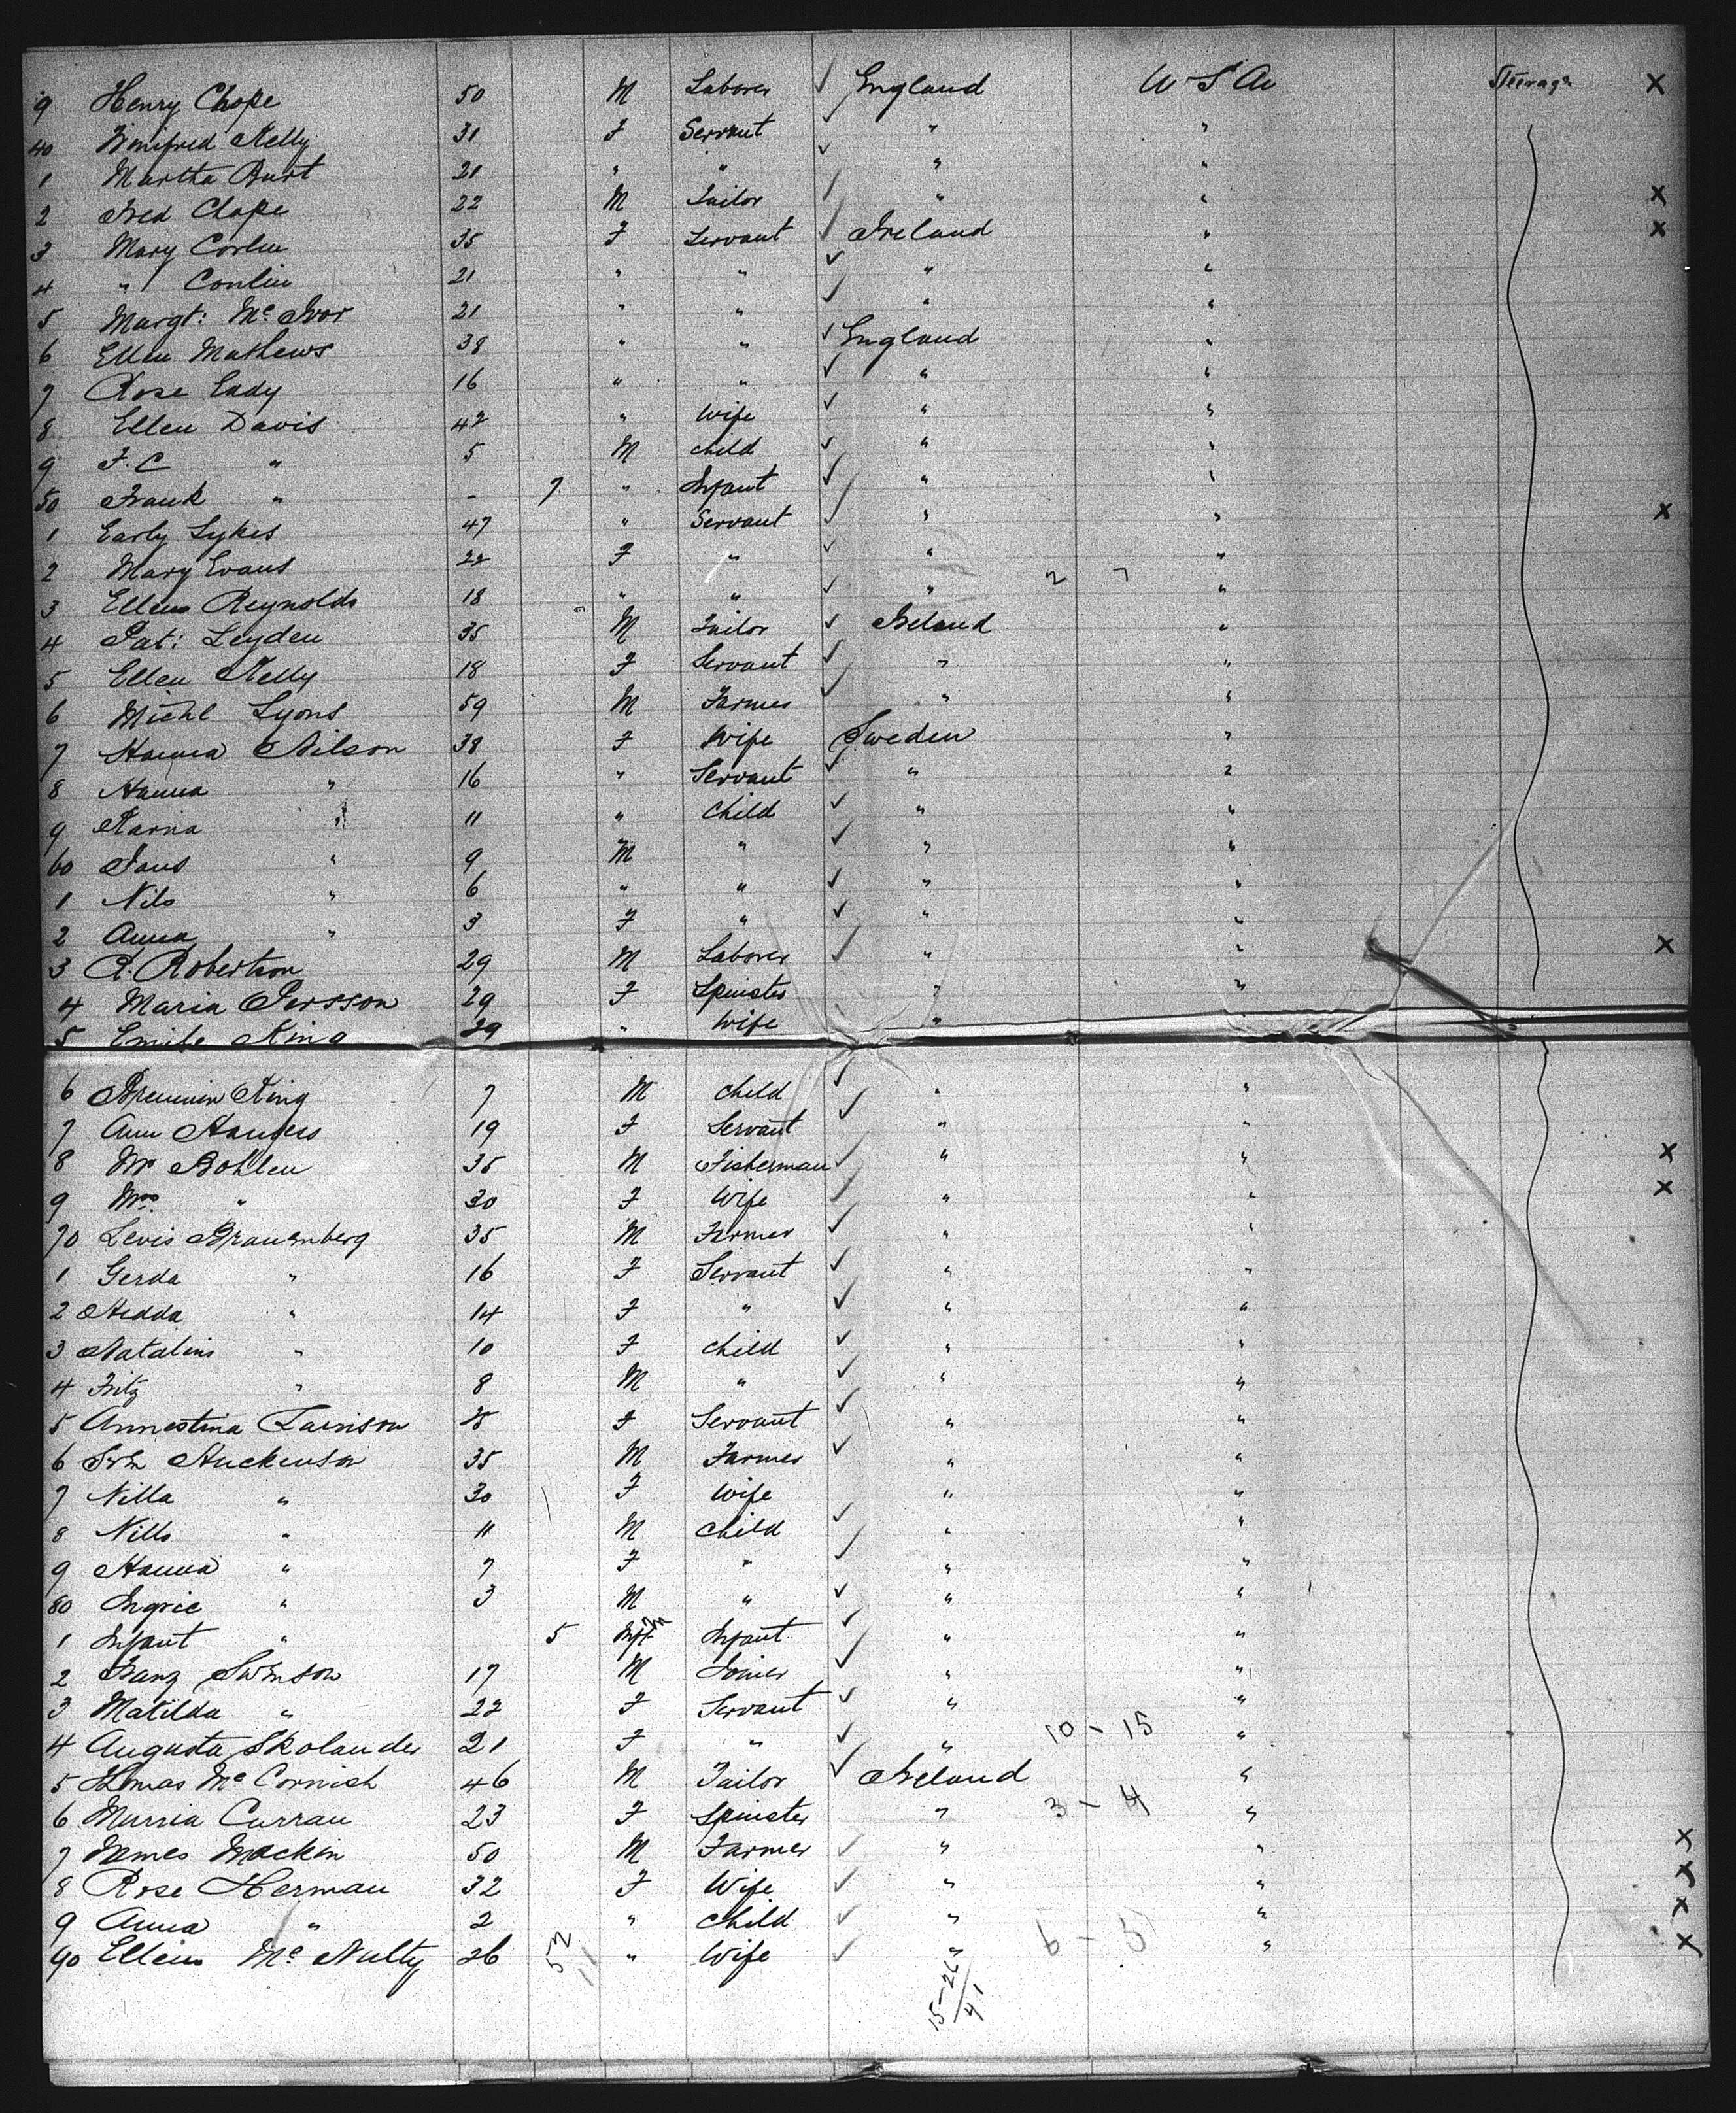 9 Henry Chope 50 M Laborer ✓ England U S A Steerage X
40 Winifred Kelly 31 F Servant ✓ " "
1 Martha Burt 21 " " ✓ " "
2 Fred Chope 22 M Tailor ✓ " " X
3 Mary Corlin 35 F Servant ✓ Ireland " X
4 " Conlin 21 " " ✓ " "
5 Margt: Mc Ivor 21 " " ✓ " "
6 Ellen Mathews 38 " " ✓ England "
7 Rose Eady 16 " " ✓ " "
8 Ellen Davis 42 " Wife ✓ " "
9 F. C " 5 M child ✓ " "
50 Frank " - 7 " Infant ✓ " "
1 Early Sykes 47 " Servant ✓ " " X
2 Mary Evans 22 F " ✓ " "
3 Ellen Reynolds 18 " " ✓ " "
4 Pat: Leyden 35 M Tailor ✓ Ireland "
5 Ellen Kelly 18 F Servant ✓ " "
6 Michl Lyons 59 M Farmer ✓ " "
7 Hanna Nilson 38 F Wife Sweden "
8 Hanna " 16 " Servant ✓ " "
9 Karna " 11 " Child ✓ " "
60 Hans " 9 M " ✓ " "
1 Nils " 6 " " ✓ " "
2 Anna " 3 F " ✓ " "
3 A. Robertson 29 M Laborer ✓ " " X
4 Maria Persson 29 F Spinster " "
5 Emile King 29 " Wife "
6 King 7 M child ✓ " "
7 Ann 19 F Servant ✓ " "
8 Mr Bohlen 35 M Fisherman ✓ " " X
9 Mrs. " 30 F Wife ✓ " " X
70 Levis Branenberg 35 M Farmer ✓ " "
1 Gerda " 16 F Servant ✓ " "
2 Hedda " 14 F " ✓ " "
3 Natalius " 10 F child ✓ " "
4 Fritz " 8 M " ✓ " "
5 Annestina F Servant ✓ " "
6 35 M Farmer ✓ " "
7 Nilla " 30 F Wife " "
8 Nills " 11 M child ✓ " "
9 Hanna " 7 F " ✓ " "
80 Ingrie " 3 M " ✓ " "
1 Infant " 5 Inft m Infant ✓ " "
2 Franz Swenson 17 M Joiner ✓ " "
3 Matilda " 22 F Servant ✓ " "
4 Augusta Skolander 21 F " ✓ " 10 - 15 "
5 Thomas Mc Cornich 46 M Tailor ✓ Ireland "
6 Murria Curran 23 F Spinster " 3 - 4 "
7 James Mackin 50 M Farmer ✓ " " X
8 Rose Herman 32 F Wife ✓ " " X
9 Anna " 2 " Child ✓ " " X
90 Ellen Mc Nulty 26 " Wife ✓ " " X
52
11
15-26
41